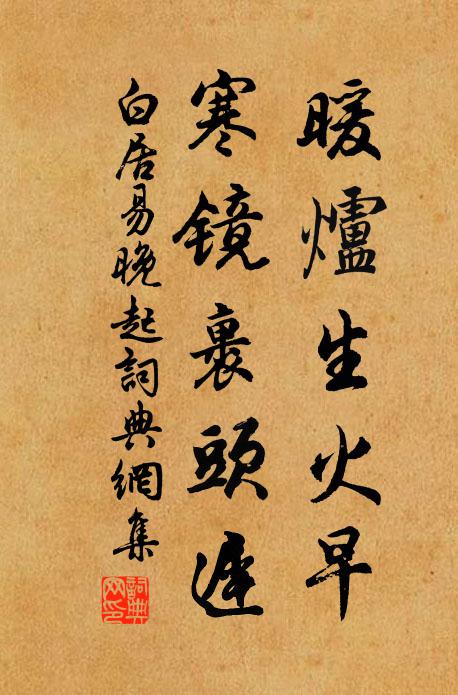 暖爐生火早
寒镜裹頭遲
白居易晚起詞典網集
詞典網印